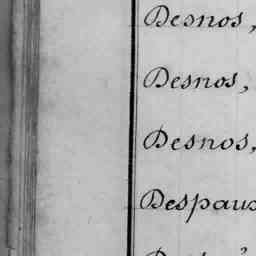 Desnos,
Desnos,
Desnos,
Despaux